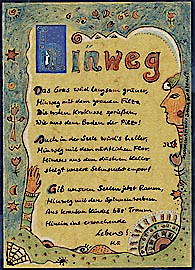 Hinweg
Das Gras wird langsam grüner,
Hinweg mit dem grauen Filz,
Die roten Krokusse grüßen,
Wie aus dem Boden der Pilz!
Auch in der Seele wird's heller,
Hinweg mit dem nächtlichen Flor.
Hinaus aus dem düstren Keller
steigt unsre Sehnsucht empor!
Gib unsren Seelen jetzt Raum,
Hinweg mit den Spinnweben
Aus
Traum
Hinein ins erwachende
Leben!